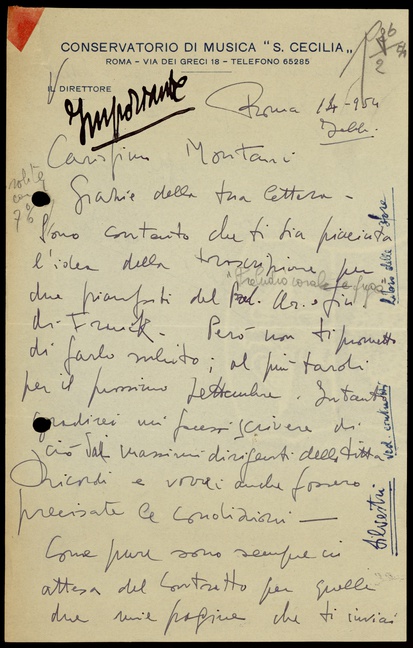 CONSERVATORIO DI MUSICA "S. CECILIA"
ROMA - VIA DEI GRECI 18 - TELEFONO 65285
IL DIRETTORE
Importante
Roma 14-954
Febb.
Carissimo Montani
Grazie della tua lettera -
Sono contento che ti sia piaciuta
l'idea della trascrizione per
"Preludio corale e fuga"
due pianoforti del Pel. Cor. e fuga
di Franck. Però non ti prometto
di farlo subito; al più tardi
per il prossimo settembre. Intanto
gradirei mi facessi scrivere di
ciò dai massimi dirigenti della Ditta
Ricordi e vorrei anche fossero
precisate le condizioni -
Come pure sono sempre in
attesa del Contratto per quelle
due mie pagine che ti inviai
Silvestri
ved. contratto